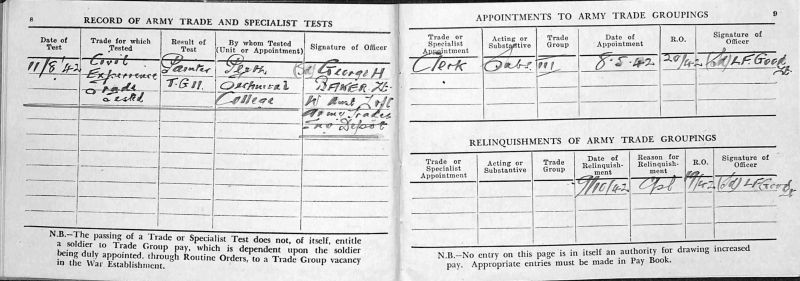 8
RECORD OF ARMY TRADE AND SPECIALIST TESTS
Date of Test
Trade for which Tested
Result of Test
By whom Tested (Unit or Appointment)
Signature of Officer
11/8/42
Civil
Painter
Perth
(Sd) George H
Experience
T.G.II.
Technical
BAKER Lt.
Trade
College
W Aust L of C
tested
Army Trades
Depot
N.B.—The passing of a Trade or Specialist Test does not, of itself, entitle
a soldier to Trade Group pay, which is dependent upon the soldier
being duly appointed, through Routine Orders, to a Trade Group vacancy
in the War Establishment.
APPOINTMENTS TO ARMY TRADE GROUPINGS
9
Trade or Specialist Appointment
Acting or Substantive
Trade Group
Date of Appointment
R.O.
Signature of Officer
Clerk
Subs.
III
8.5.42
20/42
(Sd) L F Good
Lt.
RELINQUISHMENTS OF ARMY TRADE GROUPINGS
Trade or Specialist Appointment
Acting or Substantive
Trade Group
Date of Relinquish-ment
Reason for Relinquish-ment
R.O.
Signature of Officer
9/10/42
Cpl
/42
(Sd) L F Good
N.B.—No entry on this page is in itself an authority for drawing increased
pay. Appropriate entries must be made in Pay Book.